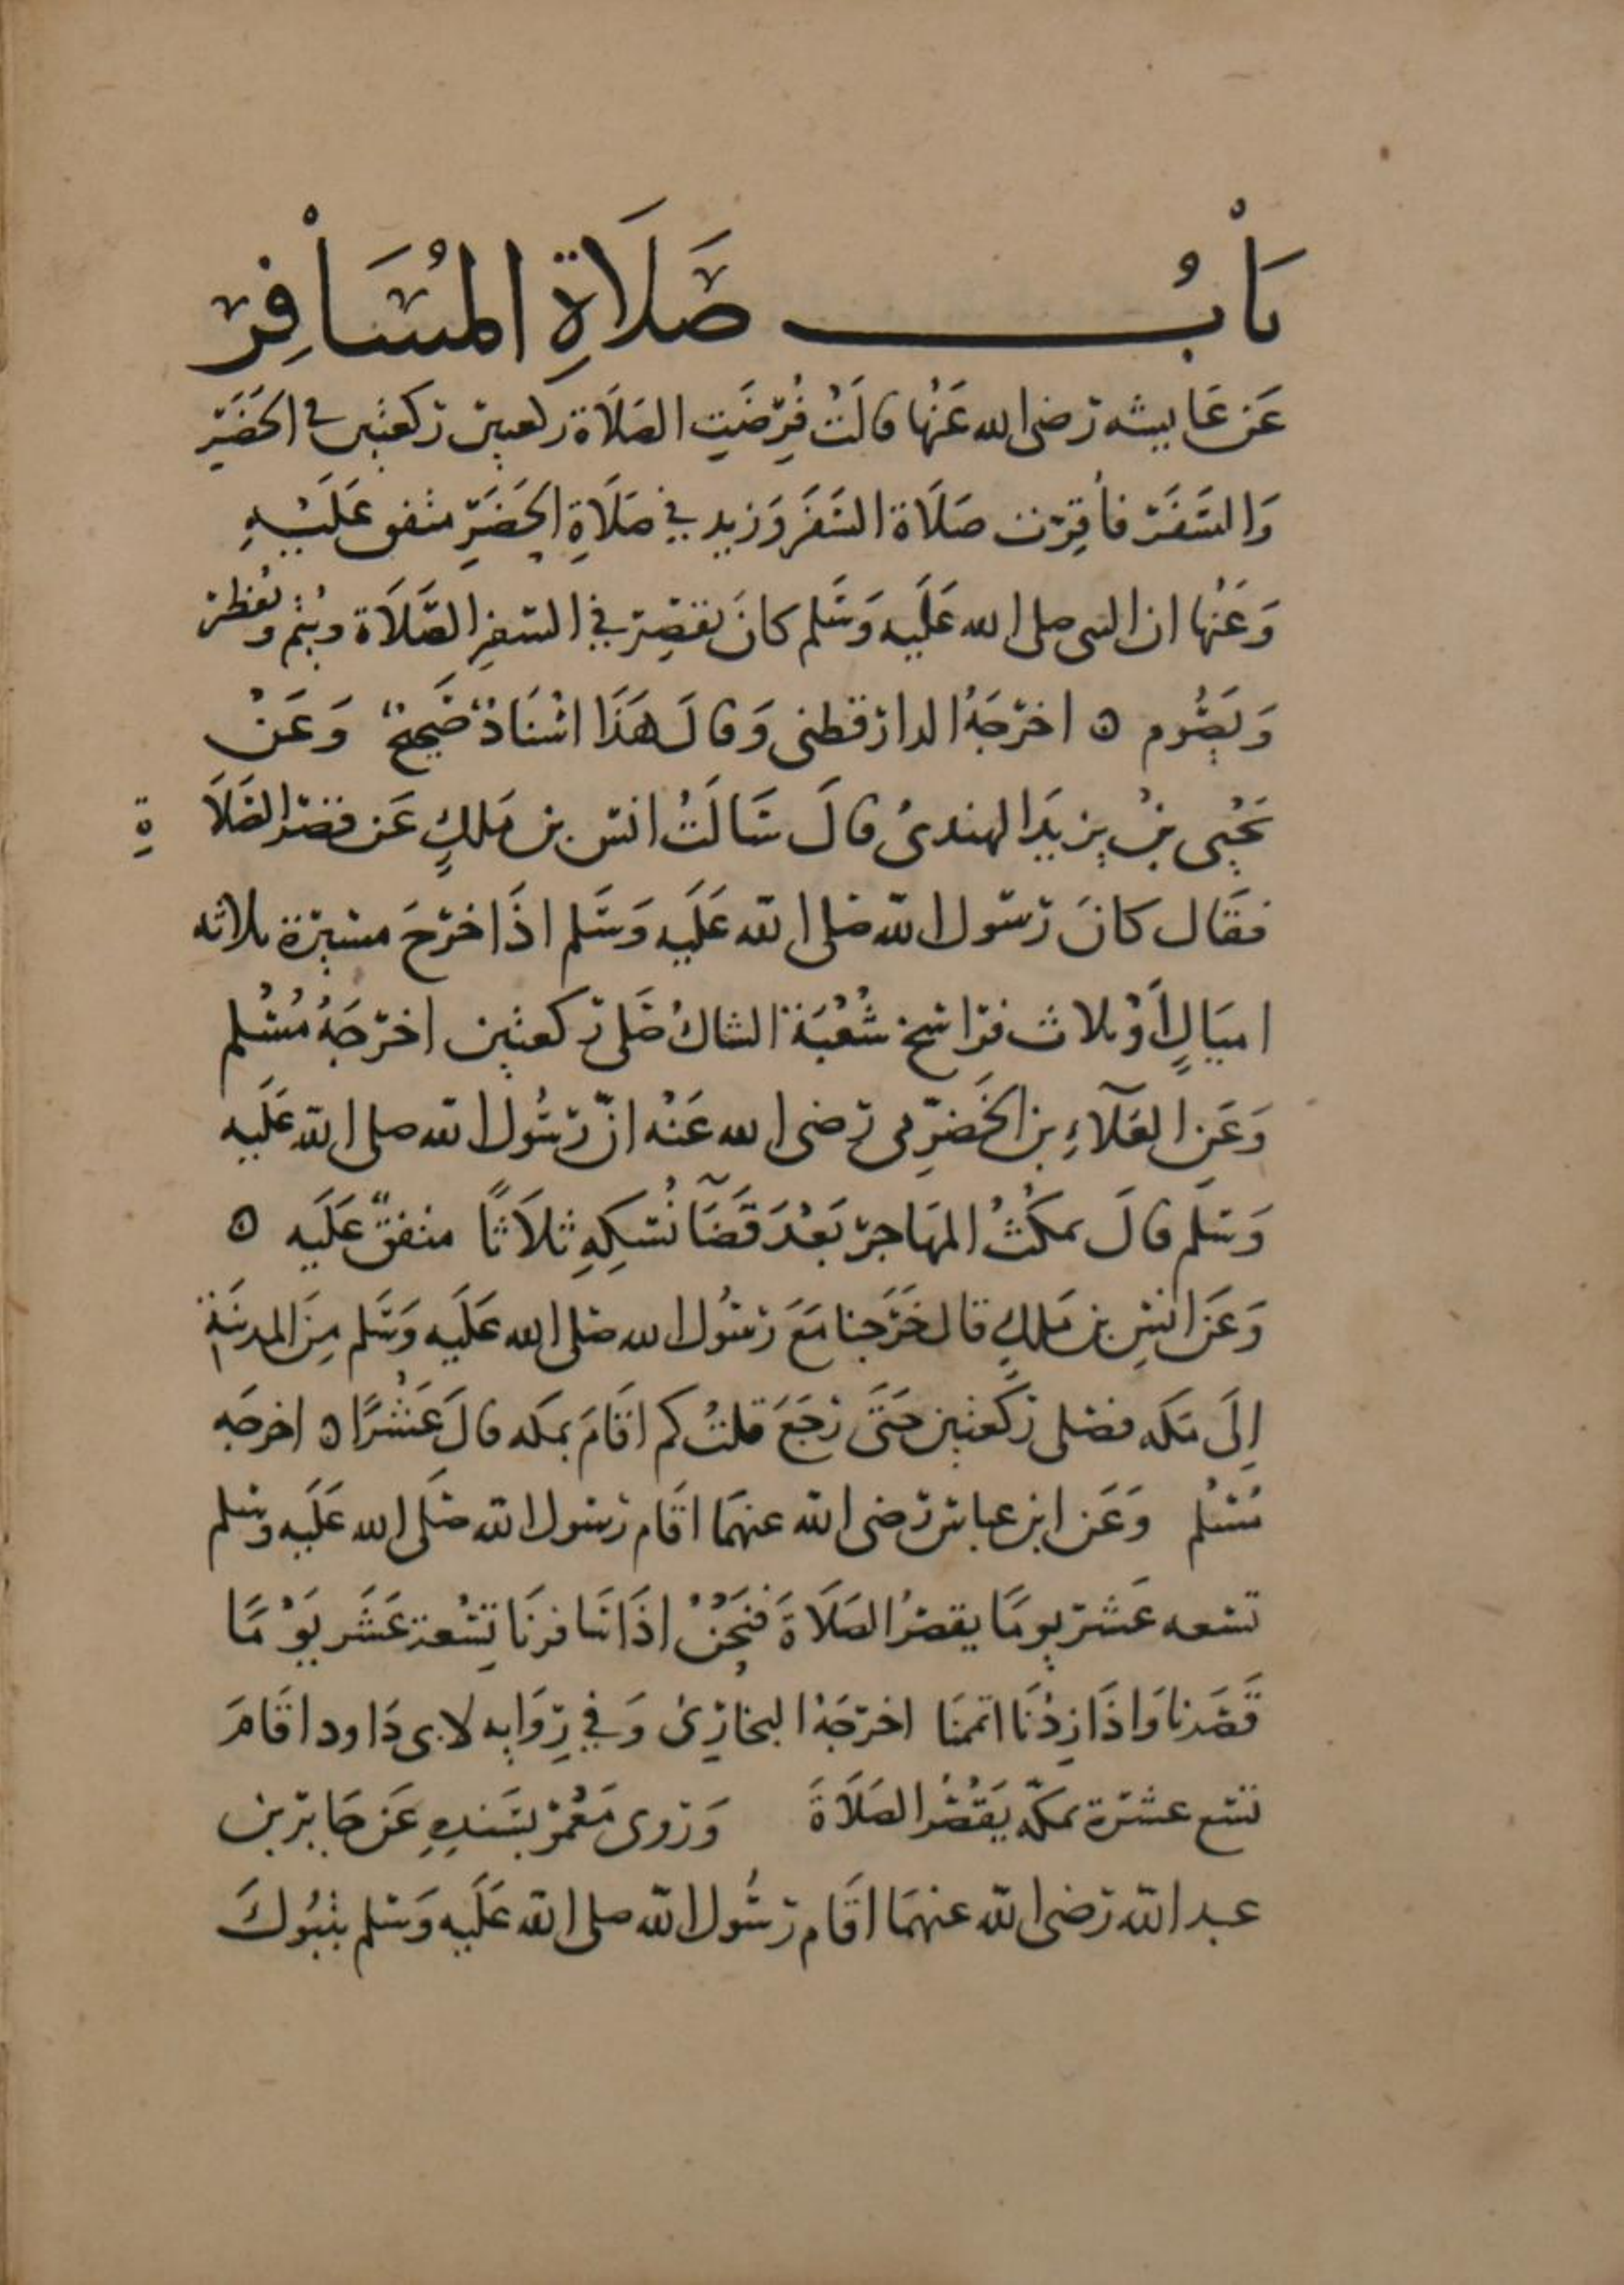 بَابُ صَلَاةِ المُسَافِر
عَن عَايشه رضى الله عَنْها قالَتْ فُرِضَتِ الصَلَاة ركعتين ركعتين في الحَضَرِ
وَالسَفَر فأُقِرّت صَلَاة السَفَر وَزيد في صَلَاةِ الحَضَرِ متفق عَلَيْهِ
وَعَنْها ان النبى صلى الله عَلَيه وَسَلم كانَ يقصِر في السفرِ الصَّلَاة ويُتم ويُفطر
وَيَصُوم ه اخرَجَهُ الدارقطنى وَقالَ هَذَا اسْنَادٌ صَحيحٌ وَعَنْ
يَحْيى بنْ يزيَد الهندىُ قالَ سَالَتُ انس بن مَلكٍ عَن قصْر الصَلَاةِ
فقَال كانَ رَسول الله صَلى الله عَلَيه وَسَلم اذَا خرَجَ مسيرة ثلاثه
اميَالٍ أَوْ ثلاث فراسخ شُعْبَة الشاكُ صَلى ركعتين اخرَجَهُ مُسْلم
وَعَنِ العَلآءِ بن الحَضرِمى رضى الله عَنْه انّ رَسُول الله صلى الله عَلَيه
وَسَلم قالَ يمكُثُ المهَاجر بَعْدَ قَضَآ نُسكِهِ ثلاَثًا متفقٌ عَلَيه ه
وَعَن انسِ بن مَلكٍ قال خَرَجنا مَعَ رَسُول الله صَلى الله عَلَيه وَسَلم مِنَ المدينَةِ
اِلَى مَكه فصَلى ركَعتين حَتَى رَجَعَ قلتُ كم اقَامَ بمكه قالَ عَشْرًا ه اخرجَه
مُسْلم وَعَن ابن عباس رَضى الله عنهمَا اقَام رَسُول الله صَلَى الله عَلَيه وسَلم
تسعه عَشر يومًا يقصرُ الصَلَاةَ فنَحْنُ اذَا سَافرنَا تِسْعة عَشَر يَوْمًا
قَصَرنا وَاذَا زِدْنَا اتممنَا اخرجَهُ البخارِىُ وَفي رِوَايه لابى دَاود اقَامَ
سَبع عشرة بمكّه يَقصُر الصَلَاةَ وَرَوى مَعْمَر بسَندِهِ عَن جَابر بن
عبد الله رَضى الله عنهمَا اقَام رَسُول الله صلى الله عَلَيه وَسَلم بتَبُوكَ